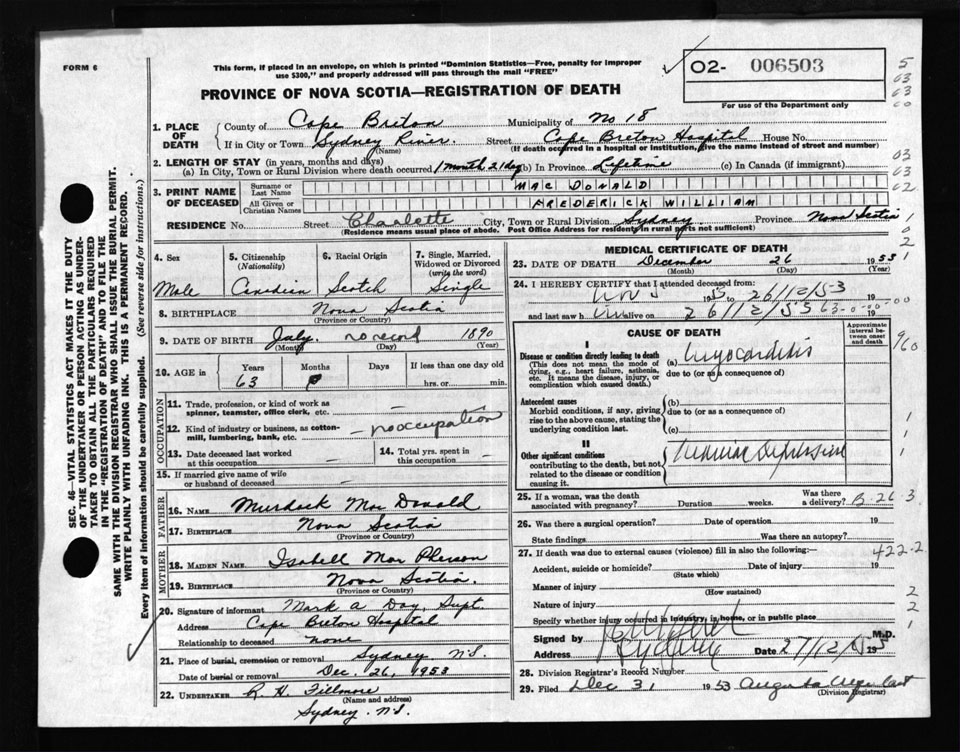 FORM 6
This form, if placed in an envelope, on which is printed "Dominion Statistics—Free, penalty for improper
use $300," and properly addressed will pass through the mail "FREE"
O2- 006503
For use of the Department only
PROVINCE OF NOVA SCOTIA—REGISTRATION OF DEATH
1. PLACE OF DEATH
County of Cape Breton Municipality of No 18
If in City or Town Sydney River. Street Cape Breton Hospital House No.
(Name) (If death occurred in a hospital or institution, give the name instead of street and number)
2. LENGTH OF STAY (in years, months and days)
(a) In City, Town or Rural Division where death occurred 1 month 21 days (b) In Province Lifetime (c) In Canada (if immigrant)
3. PRINT NAME OF DECEASED
Surname or Last Name MAC DONALD
All Given or Christian Names FREDERICK WILLIAM
RESIDENCE No. Street Charlotte City, Town or Rural Division Sydney Province Nova Scotia
(Residence means usual place of abode. Post Office Address for residents in rural parts not sufficient)
4. Sex Male
5. Citizenship (Nationality) Canadian
6. Racial Origin Scotch
7. Single, Married, Widowed or Divorced (write the word) Single
8. BIRTHPLACE Nova Scotia
(Province or Country)
9. DATE OF BIRTH July no record 1890
(Month) (Day) (Year)
10. AGE in Years Months Days If less than one day old
63 hrs. or min.
OCCUPATION
11. Trade, profession, or kind of work as
spinner, teamster, office clerk, etc. —
12. Kind of industry or business, as cotton-
mill, lumbering, bank, etc. — no occupation
13. Date deceased last worked
at this occupation —
14. Total yrs. spent in
this occupation —
15. If married give name of wife
or husband of deceased —
FATHER
16. NAME Murdock Mac Donald
17. BIRTHPLACE Nova Scotia
(Province or Country)
MOTHER
18. MAIDEN NAME Isabell Mac Pherson
19. BIRTHPLACE Nova Scotia.
(Province or Country)
20. Signature of informant Mark A Day, Supt.
Address Cape Breton Hospital
Relationship to deceased none
21. Place of burial, cremation or removal Sydney N.S.
Date of burial or removal Dec. 26, 1953
22. UNDERTAKER R. H. Fillmore
(Name and address)
Sydney. N.S.
MEDICAL CERTIFICATE OF DEATH
23. DATE OF DEATH December 26 1953
(Month) (Day) (Year)
24. I HEREBY CERTIFY that I attended deceased from:
Nov 5 1953 to 26/12/53 19
and last saw h alive on 26/12/53 19
CAUSE OF DEATH
Approximate interval between onset and death
I
Disease or condition directly leading to death
(This does not mean the mode of
dying, e.g., heart failure, asthenia,
etc. It means the disease, injury, or
complication which caused death.)
(a) Myocarditis
due to (or as a consequence of)
Antecedent causes
Morbid conditions, if any, giving
rise to the above cause, stating the
underlying condition last.
(b)
due to (or as a consequence of)
(c)
II
Other significant conditions
contributing to the death, but not
related to the disease or condition
causing it.
Depression
25. If a woman, was the death
associated with pregnancy? Duration weeks. Was there a delivery?
B-26-3
26. Was there a surgical operation? Date of operation 19
State findings Was there an autopsy?
27. If death was due to external causes (violence) fill in also the following:—
422-2
Accident, suicide or homicide? Date of injury 19
(State which)
Manner of injury
(How sustained)
Nature of injury
Specify whether injury occurred in industry, in home, or in public place
Signed by M.D.
Address Sydney Date 27/12/53 195
28. Division Registrar's Record Number
29. Filed Dec 31 1953 Augusta
(Division Registrar)
SEC. 46—VITAL STATISTICS ACT MAKES IT THE DUTY
OF THE UNDERTAKER OR PERSON ACTING AS UNDER-
TAKER TO OBTAIN ALL THE PARTICULARS REQUIRED
IN THE "REGISTRATION OF DEATH" AND TO FILE THE
SAME WITH THE DIVISION REGISTRAR WHO SHALL ISSUE THE BURIAL PERMIT.
WRITE PLAINLY WITH UNFADING INK. THIS IS A PERMANENT RECORD.
Every item of information should be carefully supplied. (See reverse side for instructions.)
5
63
63
60
03
03
63
62
1
0
2
1
960
1
1
1
2
2
1